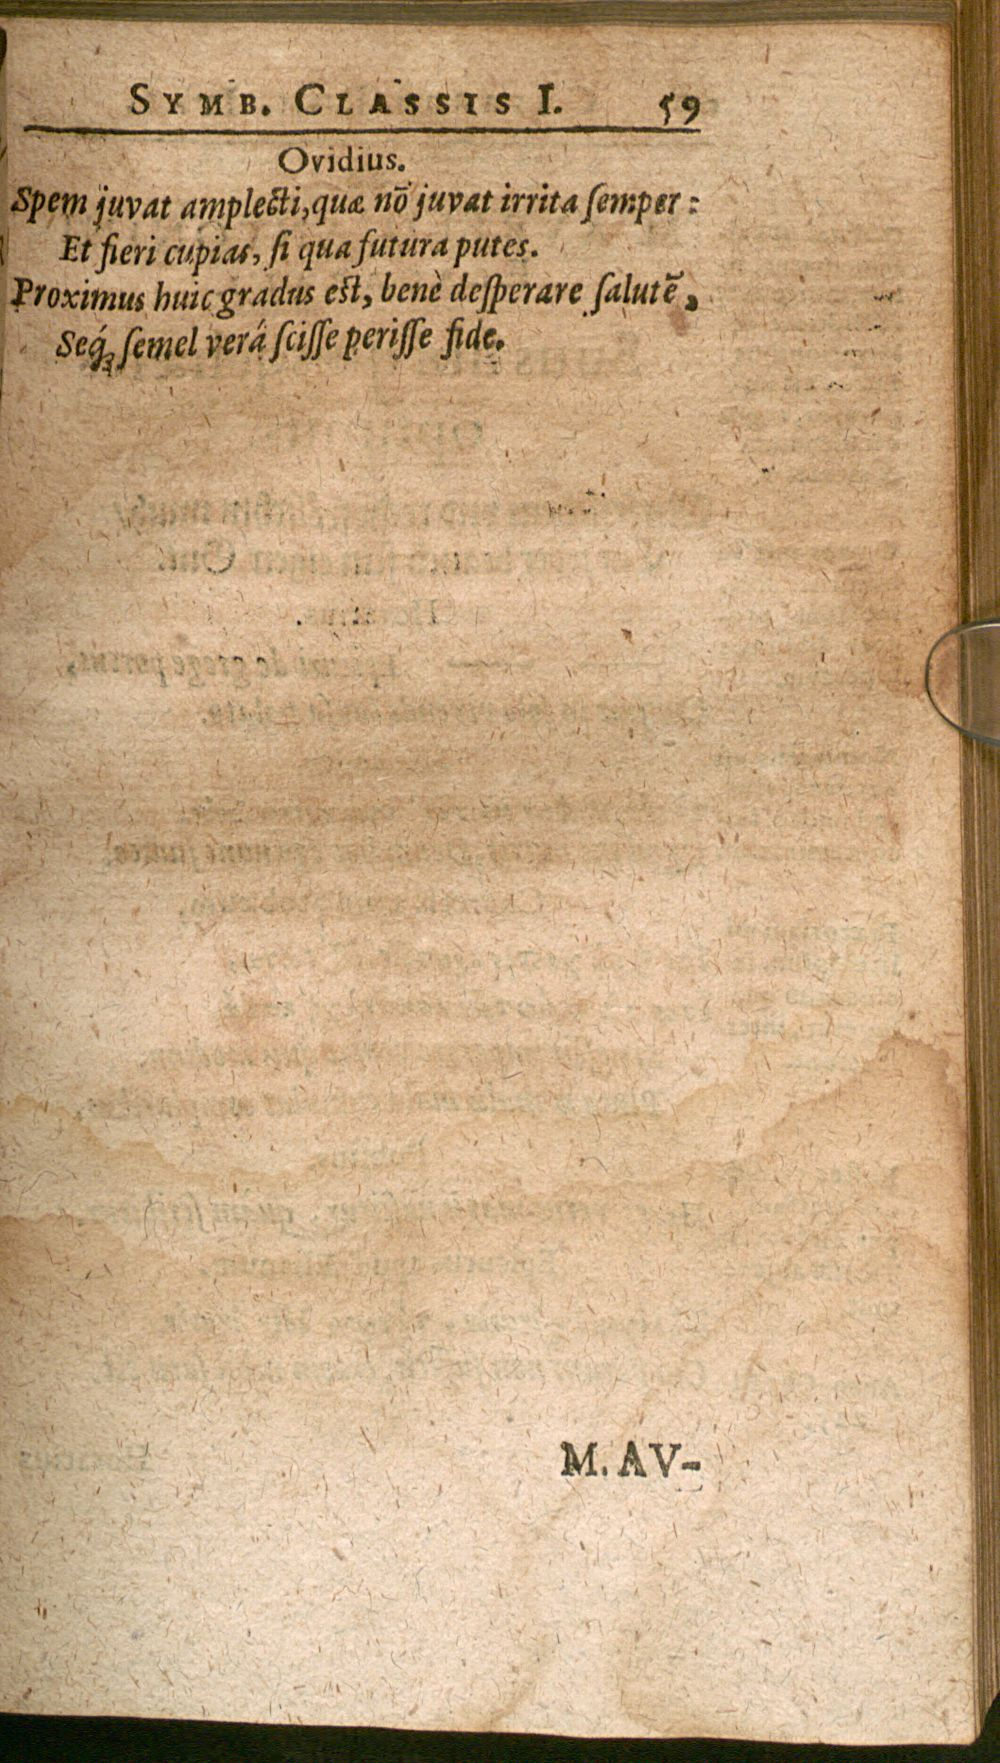 SYMB. CLASSIS I. 59
Ovidius.
Spem juvat amplecti, quæ nō juvat irrita ſemper:
Et fieri cupias, ſi qua futura putes.
Proximus huic gradus est, benè deſperare ſalutē,
Seq́ꝫ ſemel verâ ſciſſe periſſe fide.
M. AV-